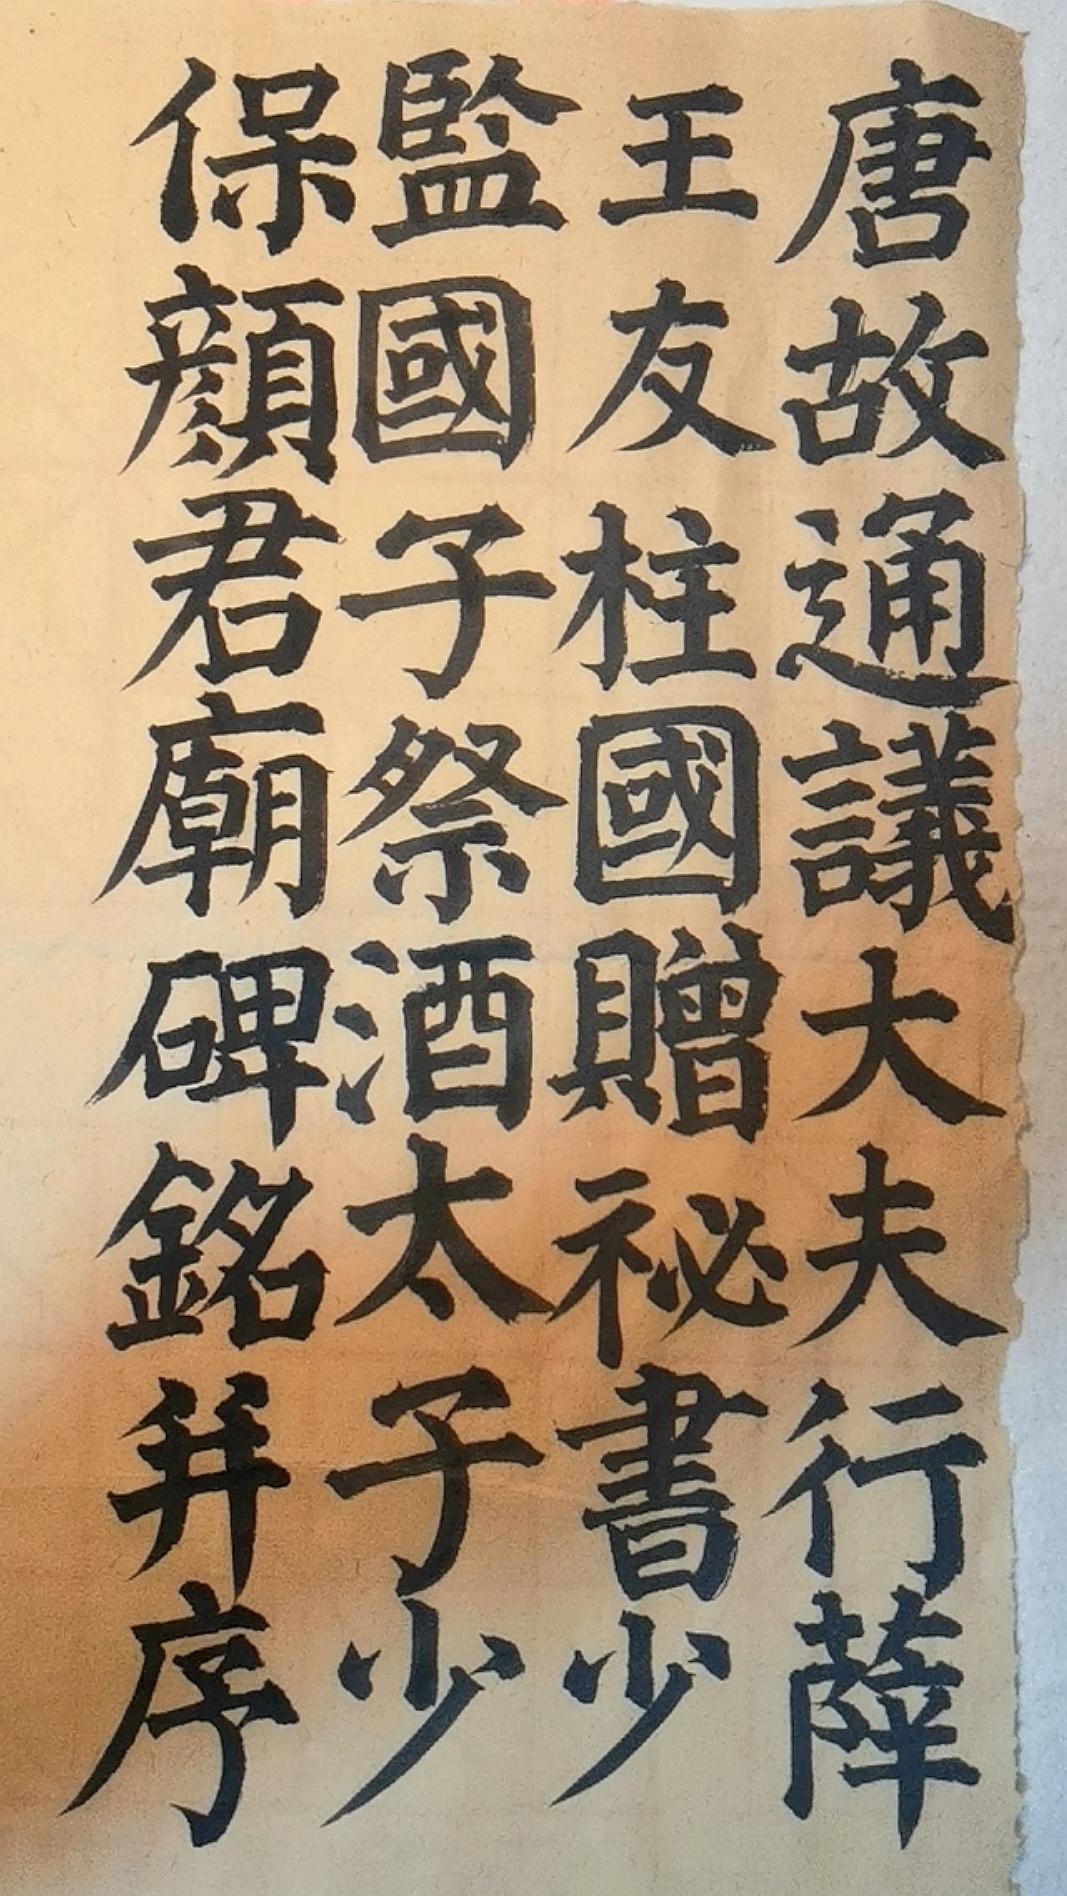 唐故通議大夫行薛
王友柱國贈祕書少
監國子祭酒太子少
保顏君廟碑銘并序